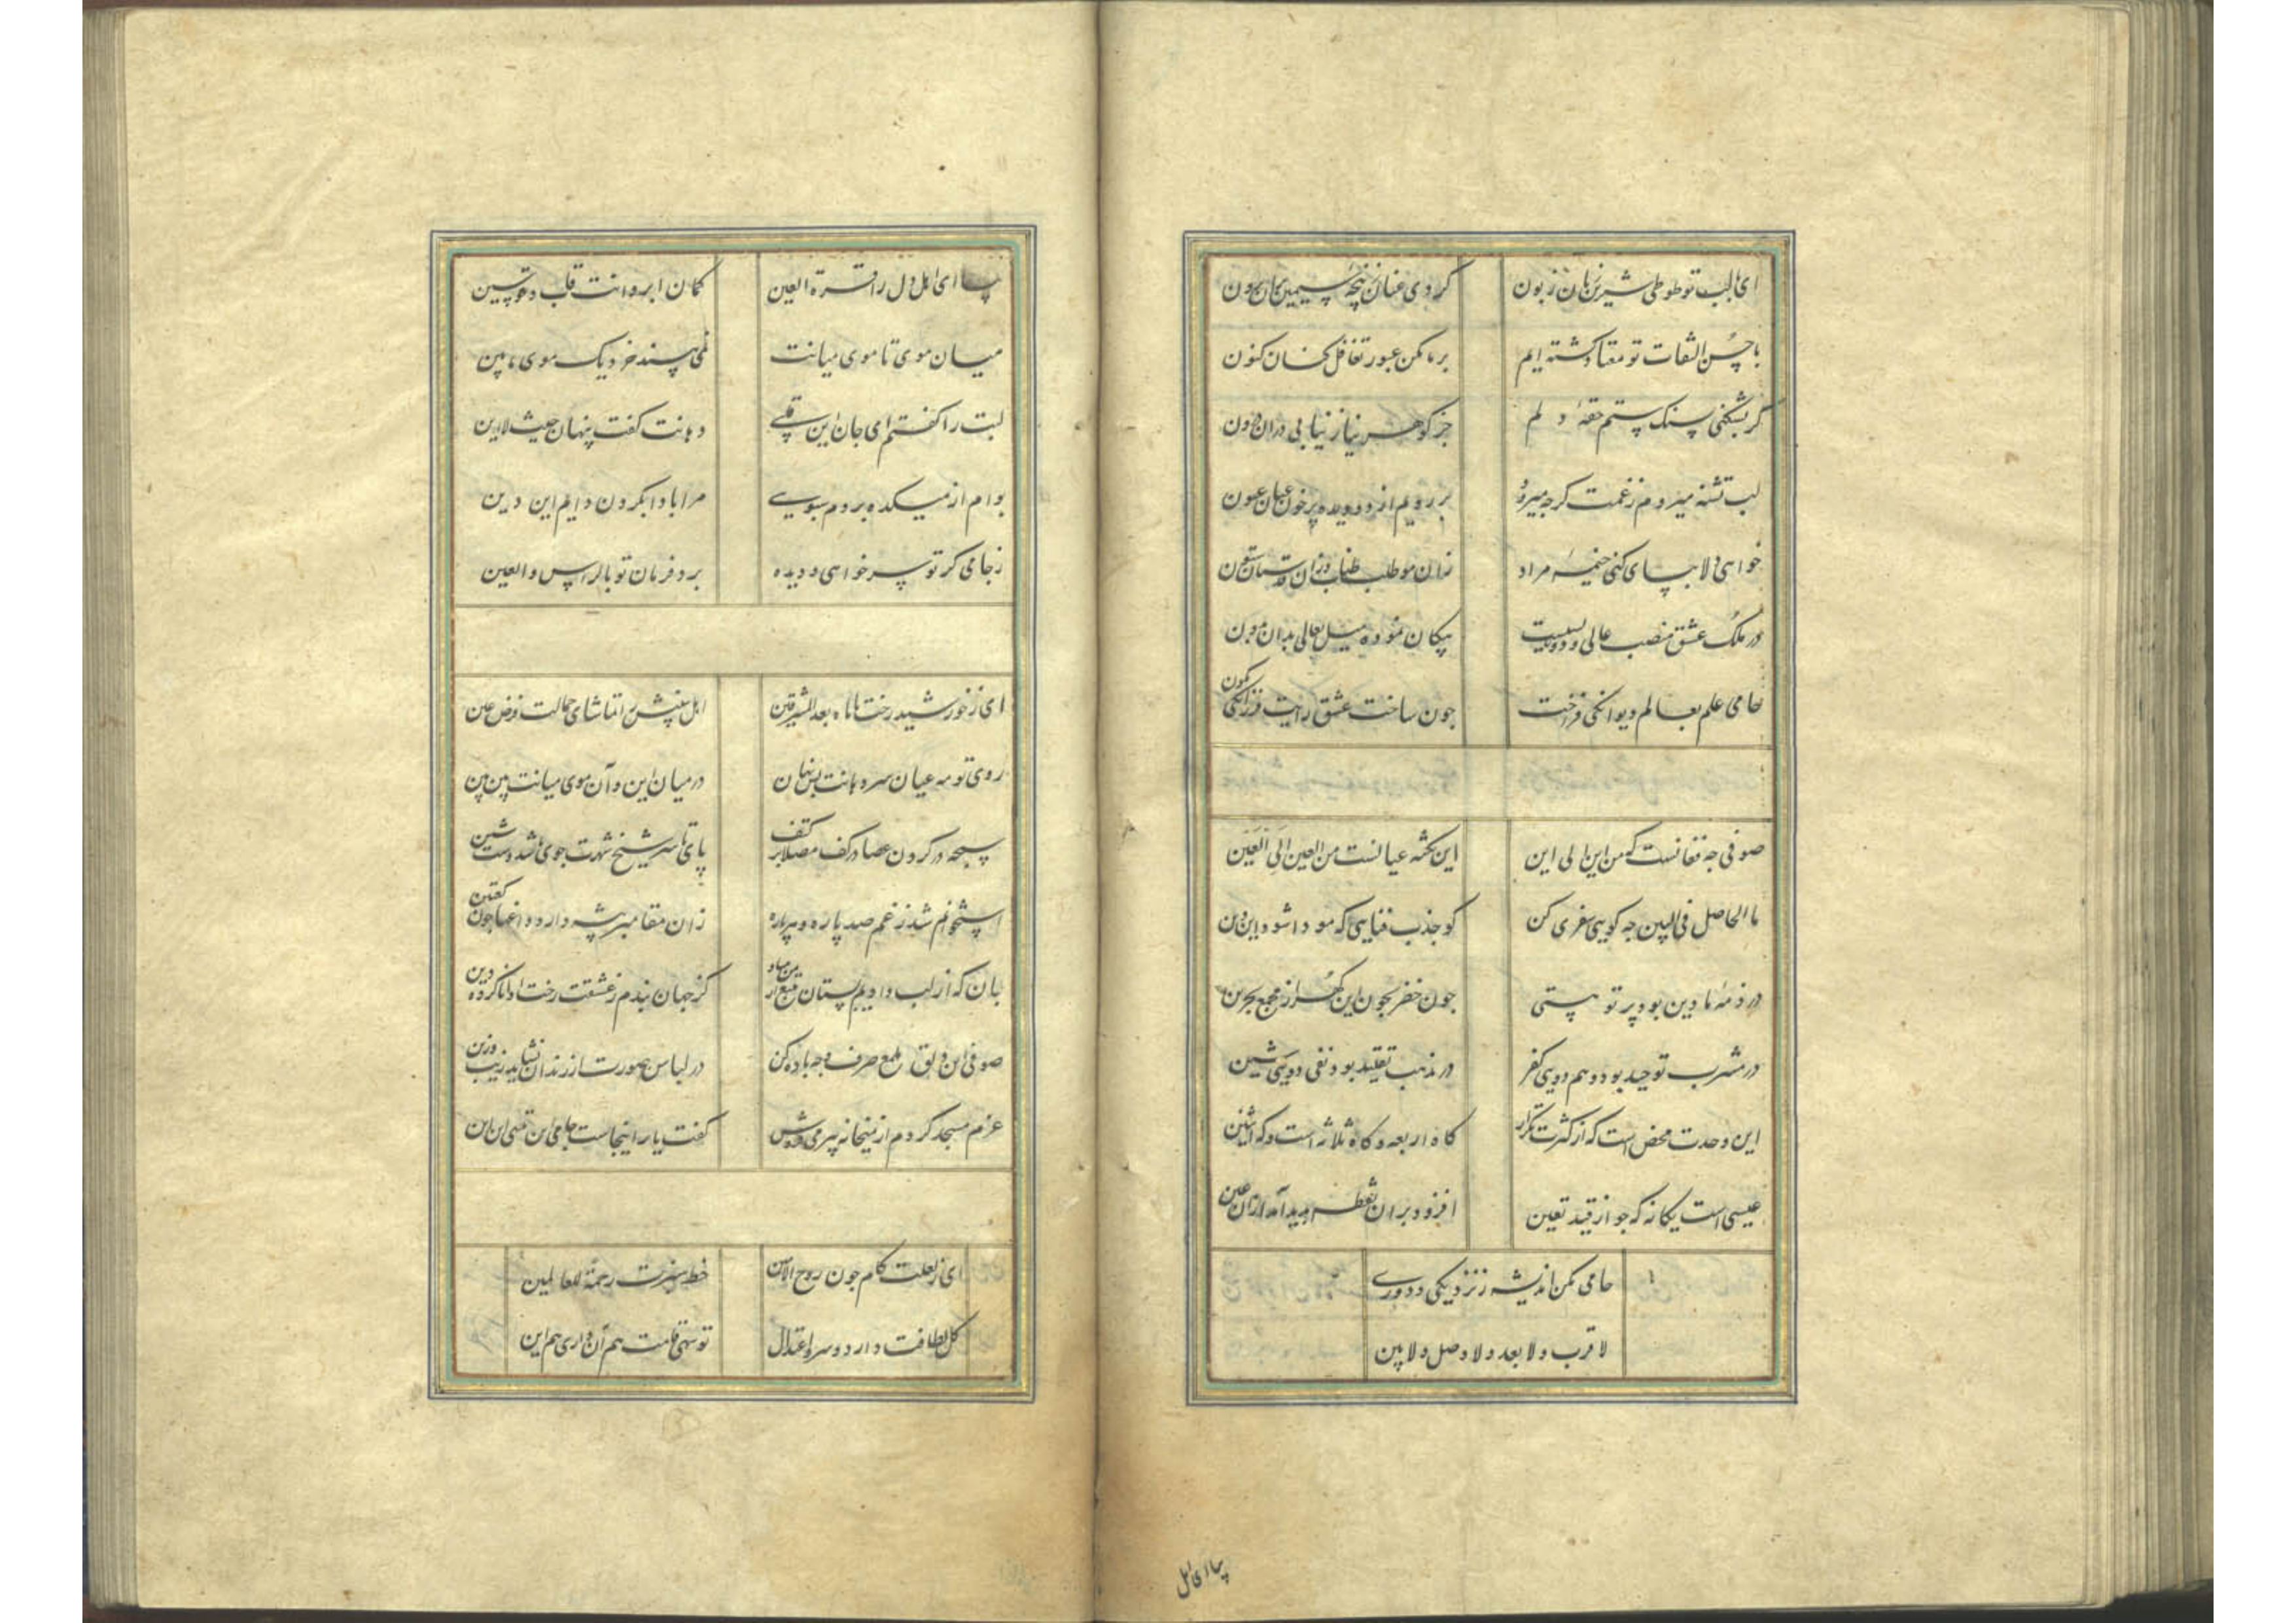 ای با لبت تو طوطی شیرین زبان زبون کردی عنان ز پنجه سیمین بران برون
با حسن التفات تو معتاد کشته ایم بر ما مکن عبور تغافل کنان کنون
کر بشکنی بسنک ستم حقه دلم جز کوهر نیاز نیابی در ان درون
لب تشنه میروم ز غمت کرچه میرود بر رویم از دو دیده پر خون عیان عیون
خواهی دلا بپای کنی خیمه مراد زان مو طلب طناب وزان دستان ستون
در ملک عشق منصب عالی و دون بسیست پیکان نموده میل بعالی بدان بدون
جامی علم بعالم دیوانکی فراخت چون ساخت عشق رایت فرزانکی نکون
صوفی چه فغانست که من این الی این این نکته عیانست من العین الی العین
ما الحاصل فی البین چه کویی سفری کن کو جذب فنایی که مودا شود این دین
در ذمه ما دین بود پرتو هستی چون خضر بجو این کهر از مجمع بحرین
در مشرب توحید بود وهم دویی کفر در مذهب تقلید بود نفی دویی شین
این وحدت محض است که از کثرت تکرار کاه اربعه و کاه ثلاثه است و که اثنین
عیسی است یکانه که چو از قید تعین افزود بران نقطه پدید آمد ازان عین
جامی مکن اندیشه ز نزدیکی و دوری
لا قرب و لا بعد و لا وصل و لا بین
بیا ای اهل
بیا ای اهل دل را قرة العین کمان ابروانت قاب قوسین
میان موی تا موی میانت نمی پسندد خرد یک موی مابین
لبت را کفتم ای جان این قلبی دهانت کفت پنهان حیث لا این
بوام از میکده بردم سبویی مرا بادا بکردن دایم این دین
ز جامی کر تو سر خواهی و دیده برد فرمان تو بالراس و العین
ای ز خورشید رخت تا ماه بعد المشرقین اهل بینش را تماشای جمالت فرض عین
روی تو مه عیان سر دهانت بس نهان در میان این و آن موی میانت بین بین
سبحه در کردن عصا در کف مصلا بر کتف پای تا سر شیخ شهرت جوی ما شد دست شین
استخوانم شد ز غم صد پاره و هر پاره زان مقامر پیشه دارد داغها چون کعبتین
بان که از لب وا دهم بستان متاع از من مباد کز جهان بندم ز عشقت رخت ادا ناکرده دین
صوفی این دلق ملمع صرف وجه باده کن در لباس صورت از زندان نشاید زیب و زین
عزم مسجد کردم از میخانه پیر می فروش کفت یار اینجاست جامی این تمشی این این
ای ز لعلت کام چون روح الامین خط سبزت رحمة للعالمین
کل لطافت دارد و سرو اعتدال تو سهی قامت هم آن داری هم این